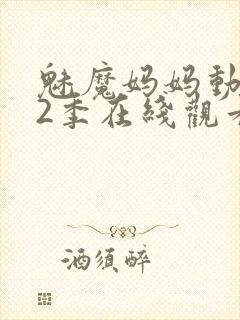 魅魔妈妈動
2季在綫觀
酒须醉